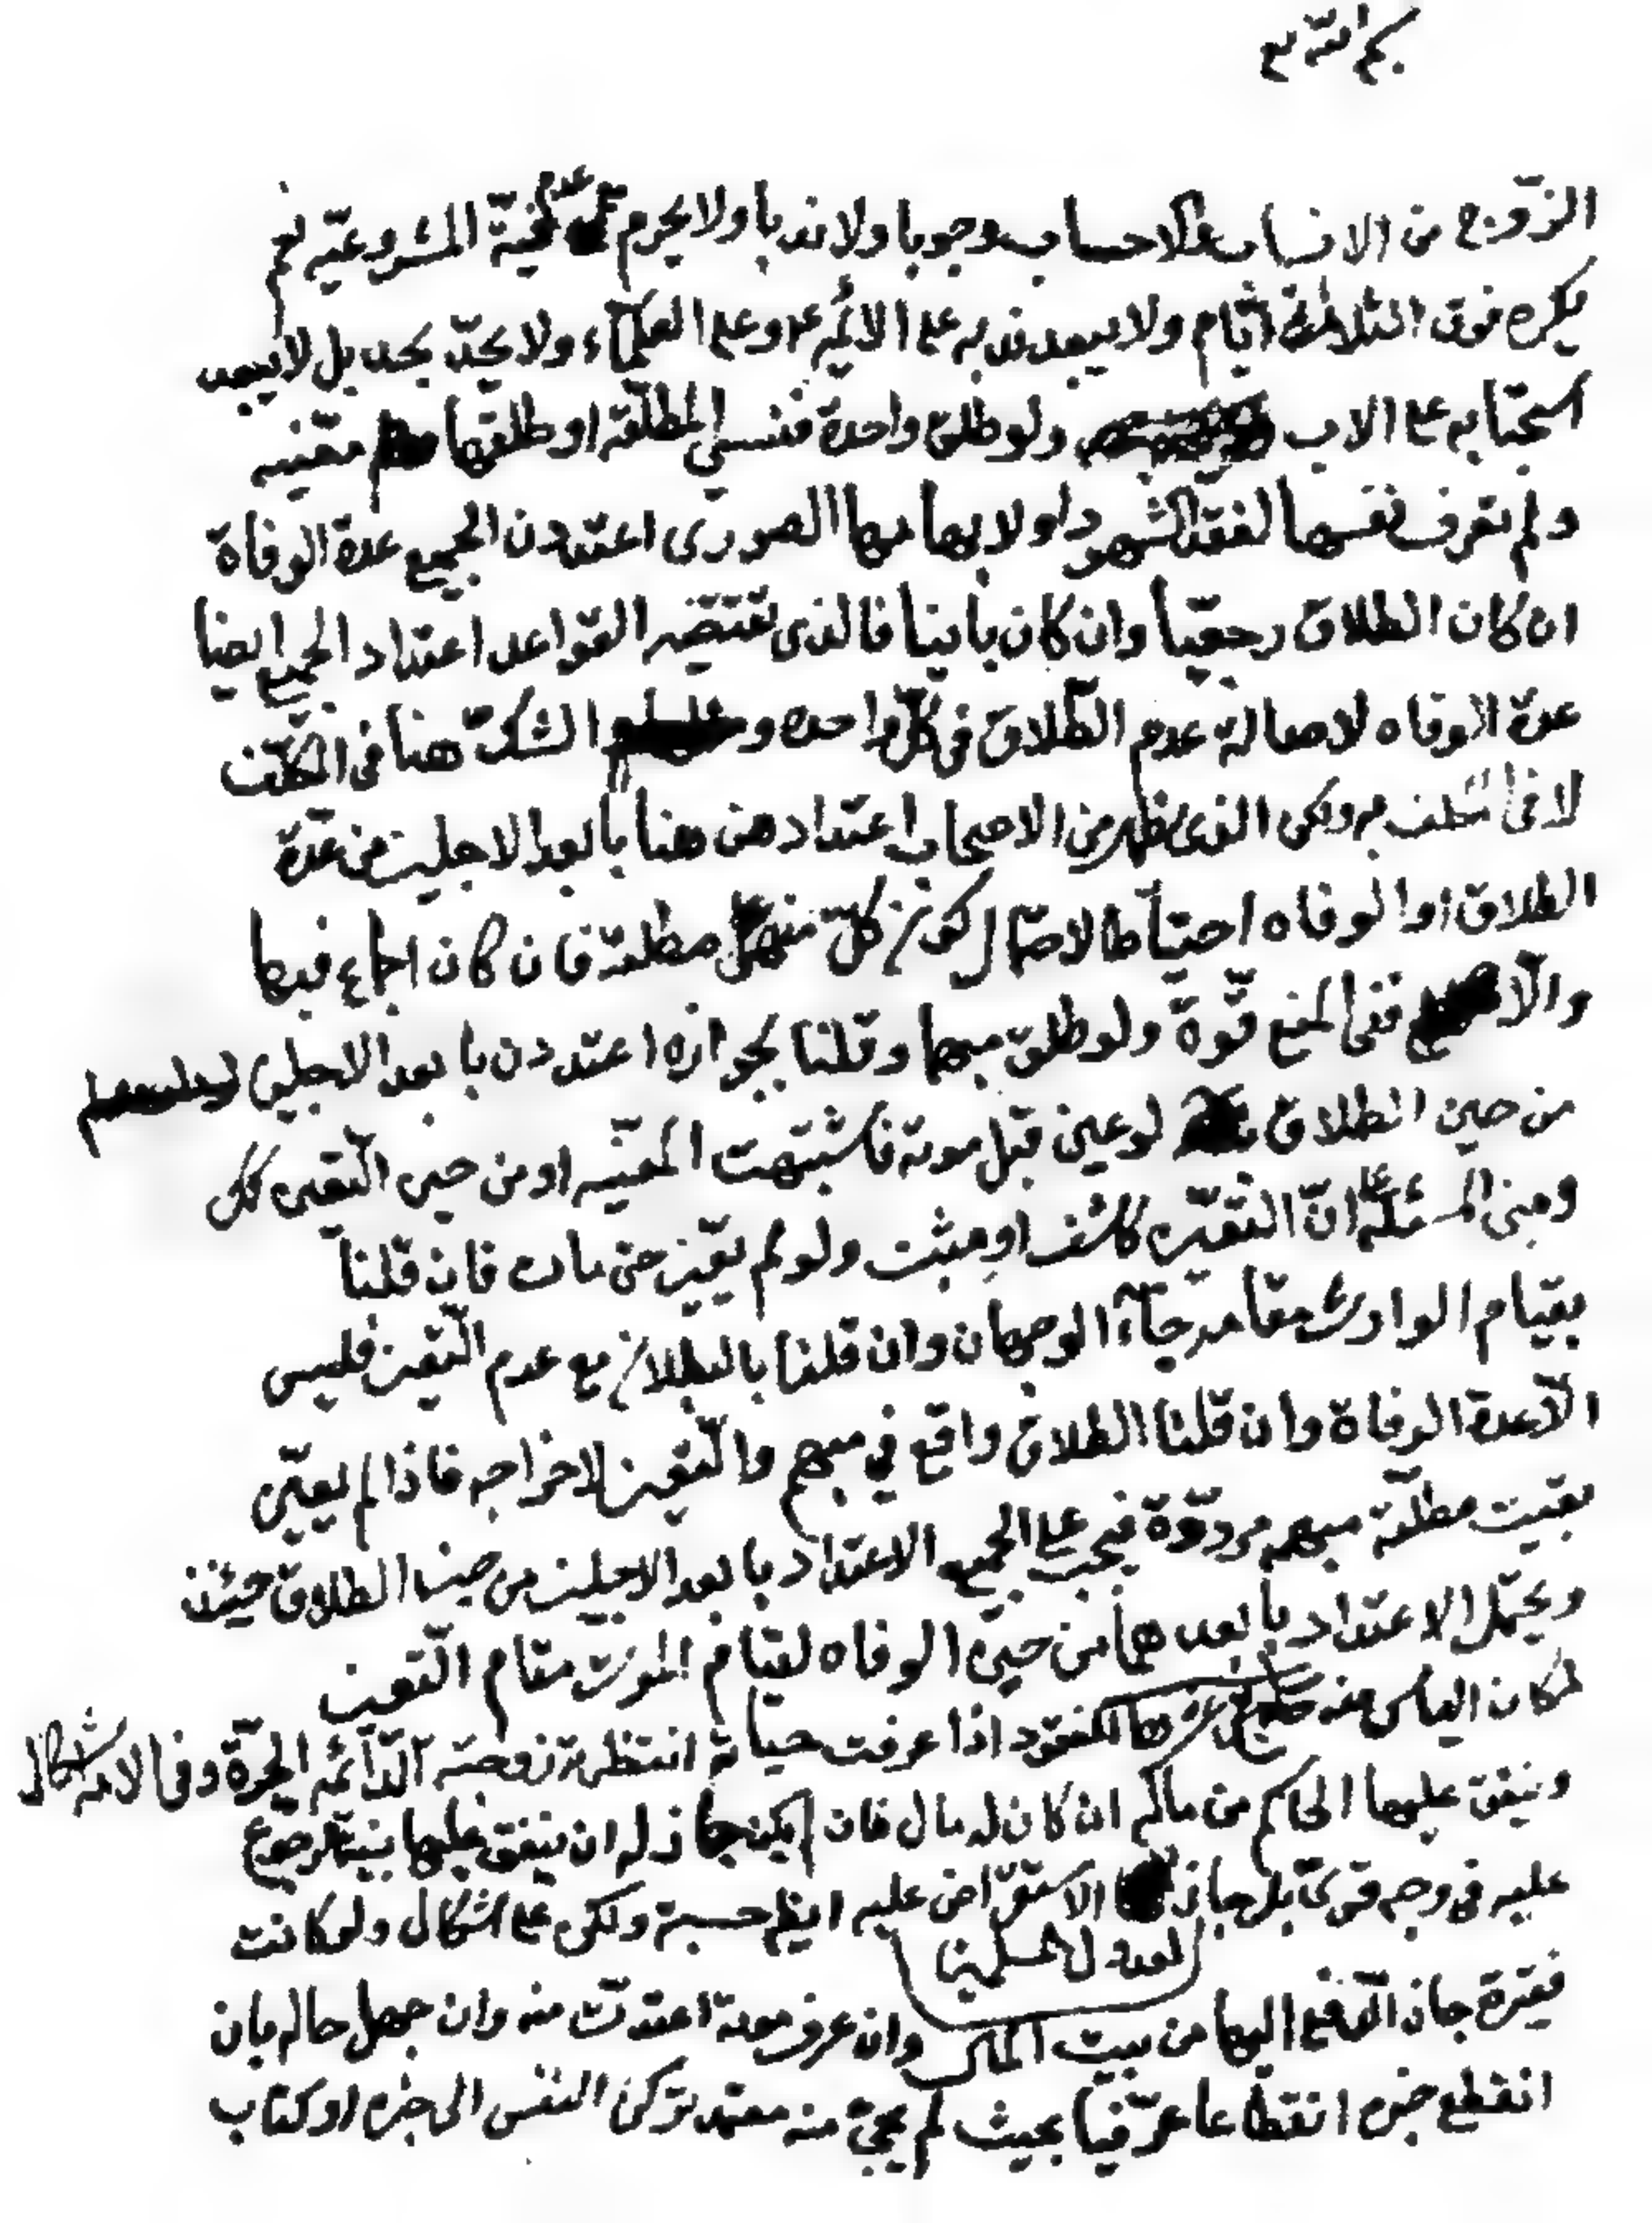 بسم الله تع
الزوج من الانساب والاحساب وجوبا ولا ندبا ولا يحرم مع عدم نية المشروعية نعم
يكره فوق الثلاثة ايام ولا يبعد ندبه على الائمة ع وعلى العلماء ولا يحد بحد بل لا يبعد
استحبابه على الاب ولو طلق واحدة فنسي المطلقة او طلقها معينه
ولم تعرف نفسها لفقد الشهود او لابهامها الصوري اعتددن الجميع عدة الوفاة
ان كان الطلاق رجعيا وان كان باينا فالذي تقتضيه القواعد اعتداد الجميع ايضا
عدة الوفاه لاصالة عدم الطلاق في كل واحده و الشك هنا في المكلف
لا في المكلف به ولكن الذي يظهر من الاصحاب اعتداد هن هنا بابعد الاجلين من عدة
الطلاق او الوفاه احتياطا لاحتمال كون كل منهن مطلقة فان كان اجماع فبها
والا ففي المنع قوة ولو طلق مبهما وقلنا بجوازه اعتددن بابعد الاجلين
من حين الطلاق لو عين قبل موته فاشتبهت المعينه او من حين التعيين كك
ومبنى المسئلة على ان التعيين كاشف او مثبت ولو لم يعين حتى مات فان قلنا
بقيام الوارث مقامه جآء الوجهان وان قلنا بالبطلان مع عدم التعيين فليس
الا عدة الوفاة وان قلنا الطلاق واقع في مبهم والتعيين لاخراجه فاذا لم يعين
بقيت مطلقة مبهمه مرددة فيجب على الجميع الاعتداد بابعد الاجلين من حين الطلاق حينئذ
ويحتمل الاعتداد بابعدهما من حين الوفاه لقيام الموت مقام التعين
لمكان الياس منه المفقود اذا عرفت حياته انتظرته زوجته الدائمه الحرة وفي الامه اشكال
وينفق عليها الحاكم من ماله ان كان له مال فان لم يكن جاز له ان ينفق عليها بنية الرجوع
عليه في وجه قوي بل جاز الاستقراض عليه ايضا حسبة ولكن على اشكال ولو كانت
لعدول المسلمين
فقيرة جاز الدفع اليها من بيت المال وان عرف موته اعتدت منه وان جهل حاله بان
انقطع خبره انقطاعا عرفيا بحيث لم يجئ منه معتمد تركن النفس الى خبره او كتاب